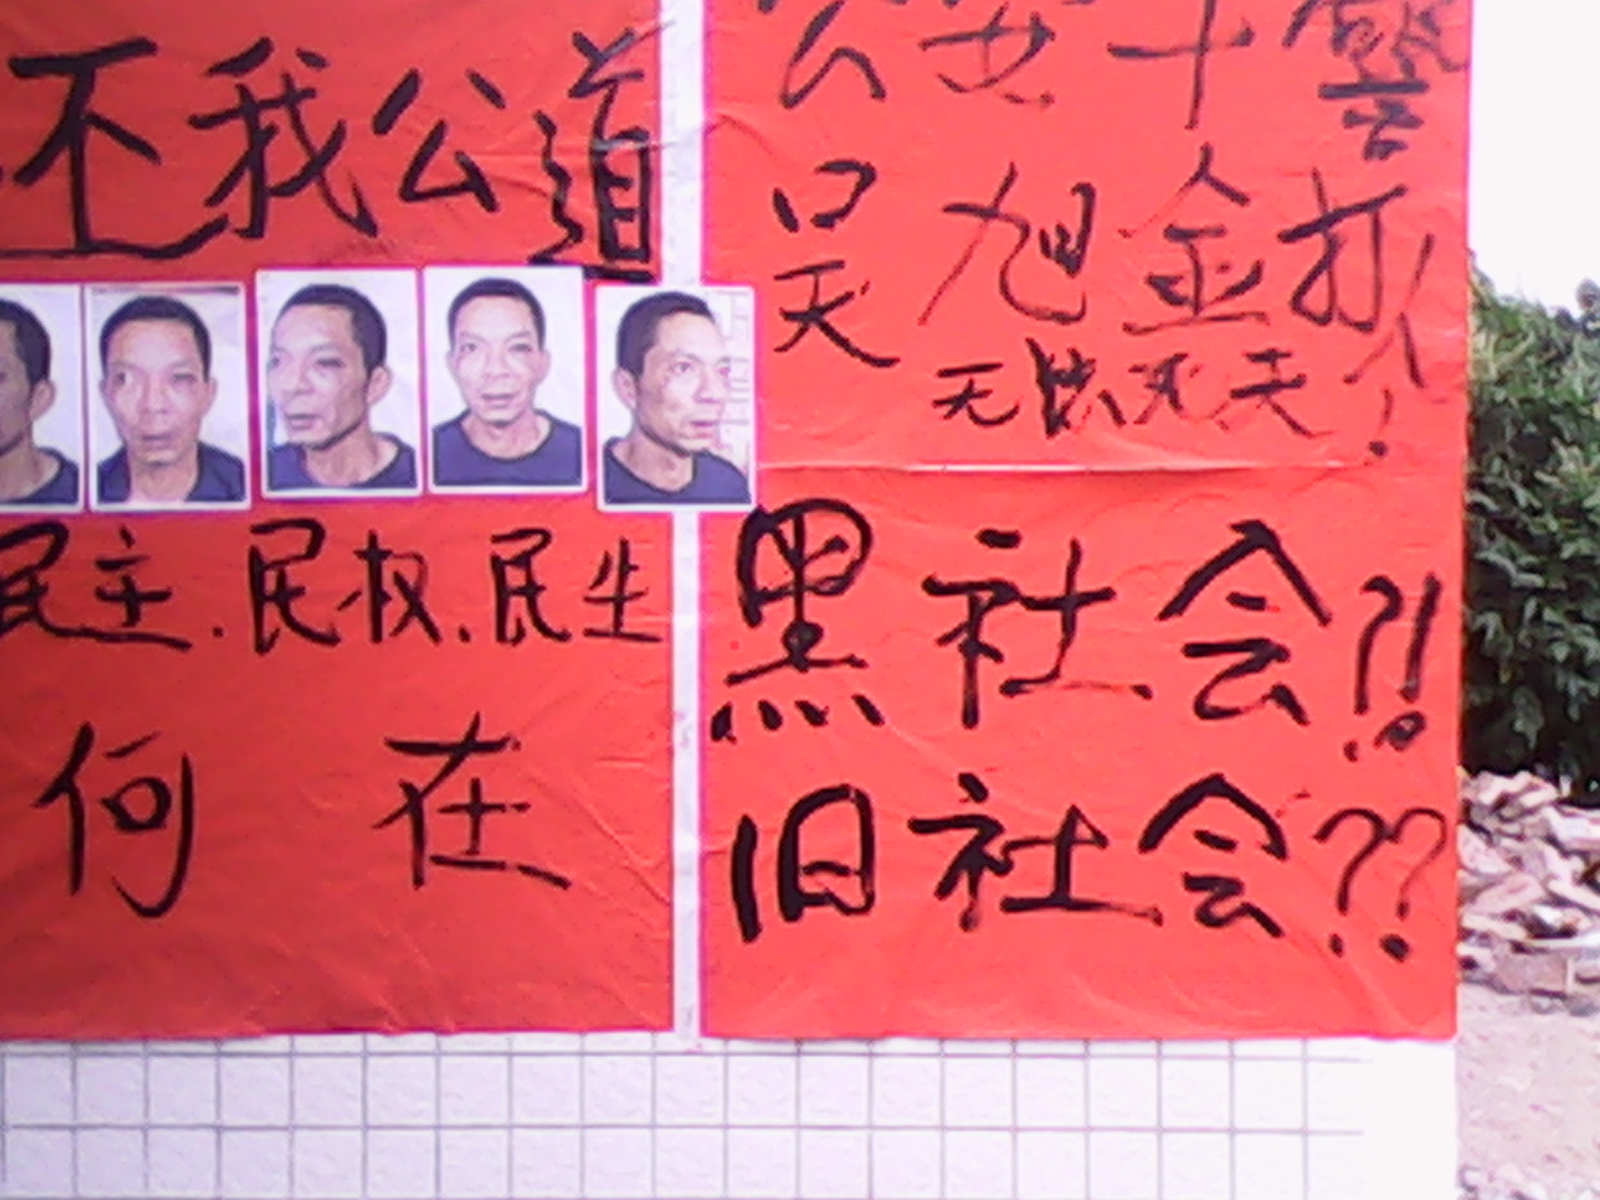 还我公道
民主.民权.民生
何在
公安干警
吴旭金打人!
黑社会?!
旧社会??